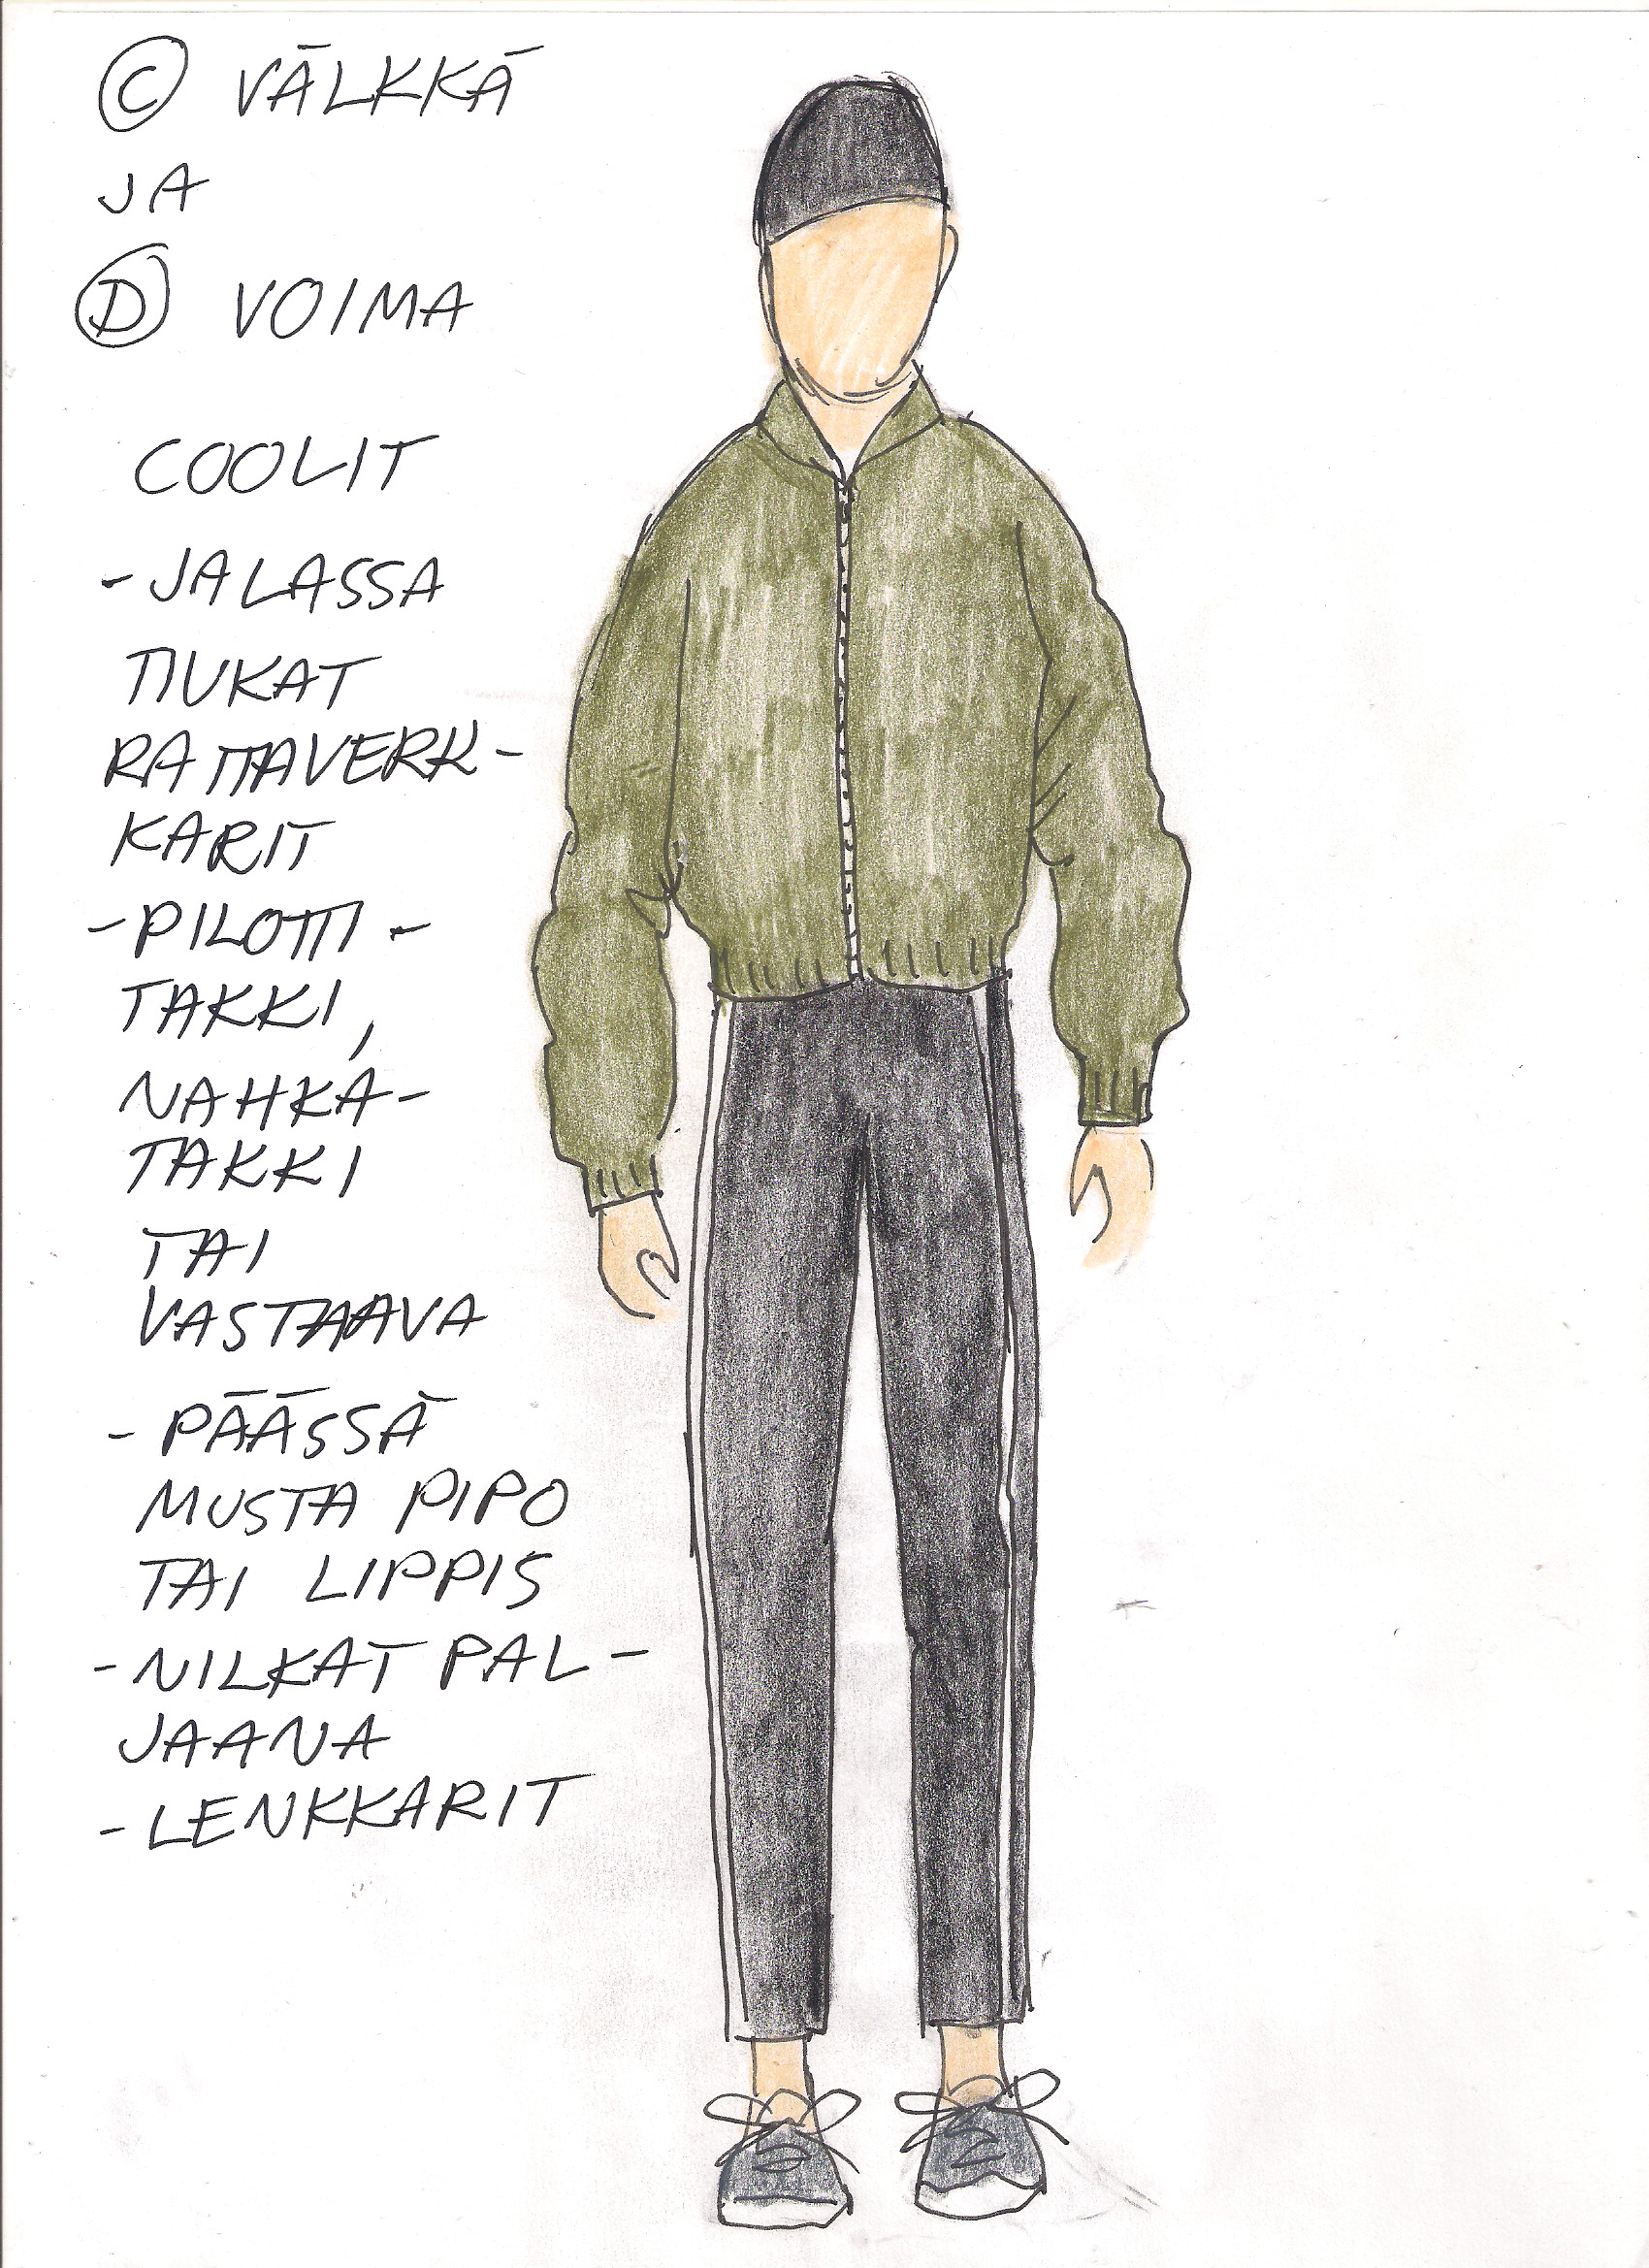 Ⓒ VÄLKKÄ
JA
Ⓓ VOIMA
COOLIT
- JALASSA
TIUKAT
RAITAVERK-
KARIT
- PILOTTI-
TAKKI,
NAHKA-
TAKKI
TAI
VASTAAVA
- PÄÄSSÄ
MUSTA PIPO
TAI LIPPIS
- NILKAT PAL-
JAANA
- LENKKARIT